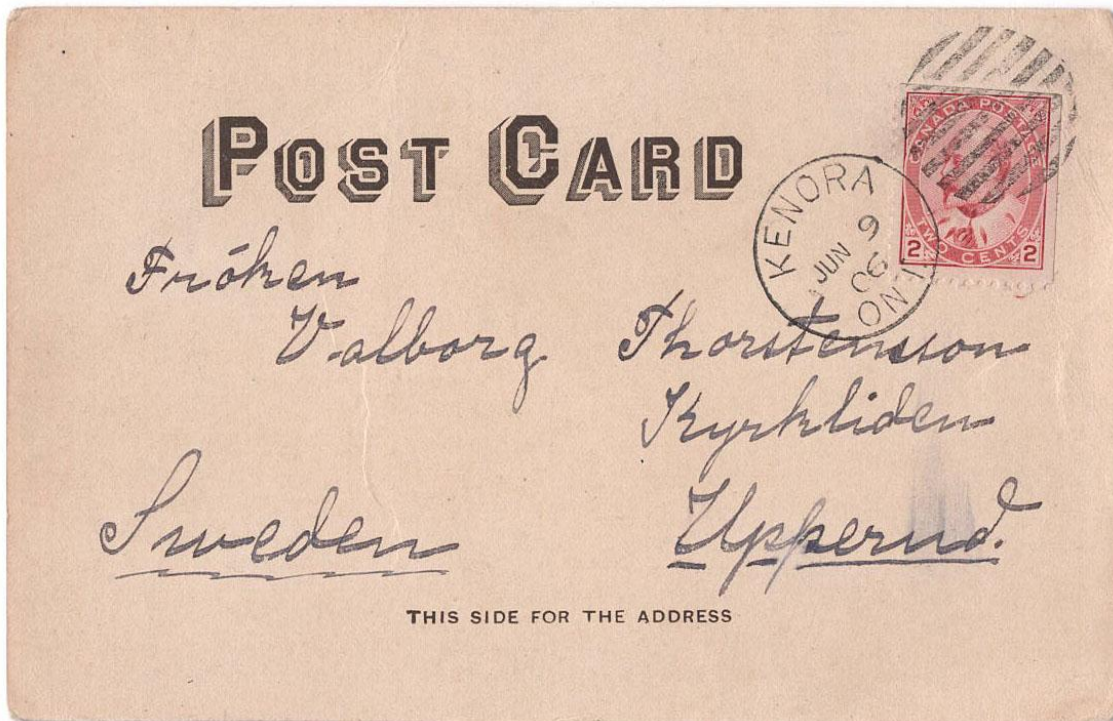 POST CARD
CANADA POSTAGE
2 TWO CENTS 2
KENORA
JUN 9
06
ONT
Fröken
Valborg Thorstensson
Kyrkliden
Sweden Upperud.
THIS SIDE FOR THE ADDRESS